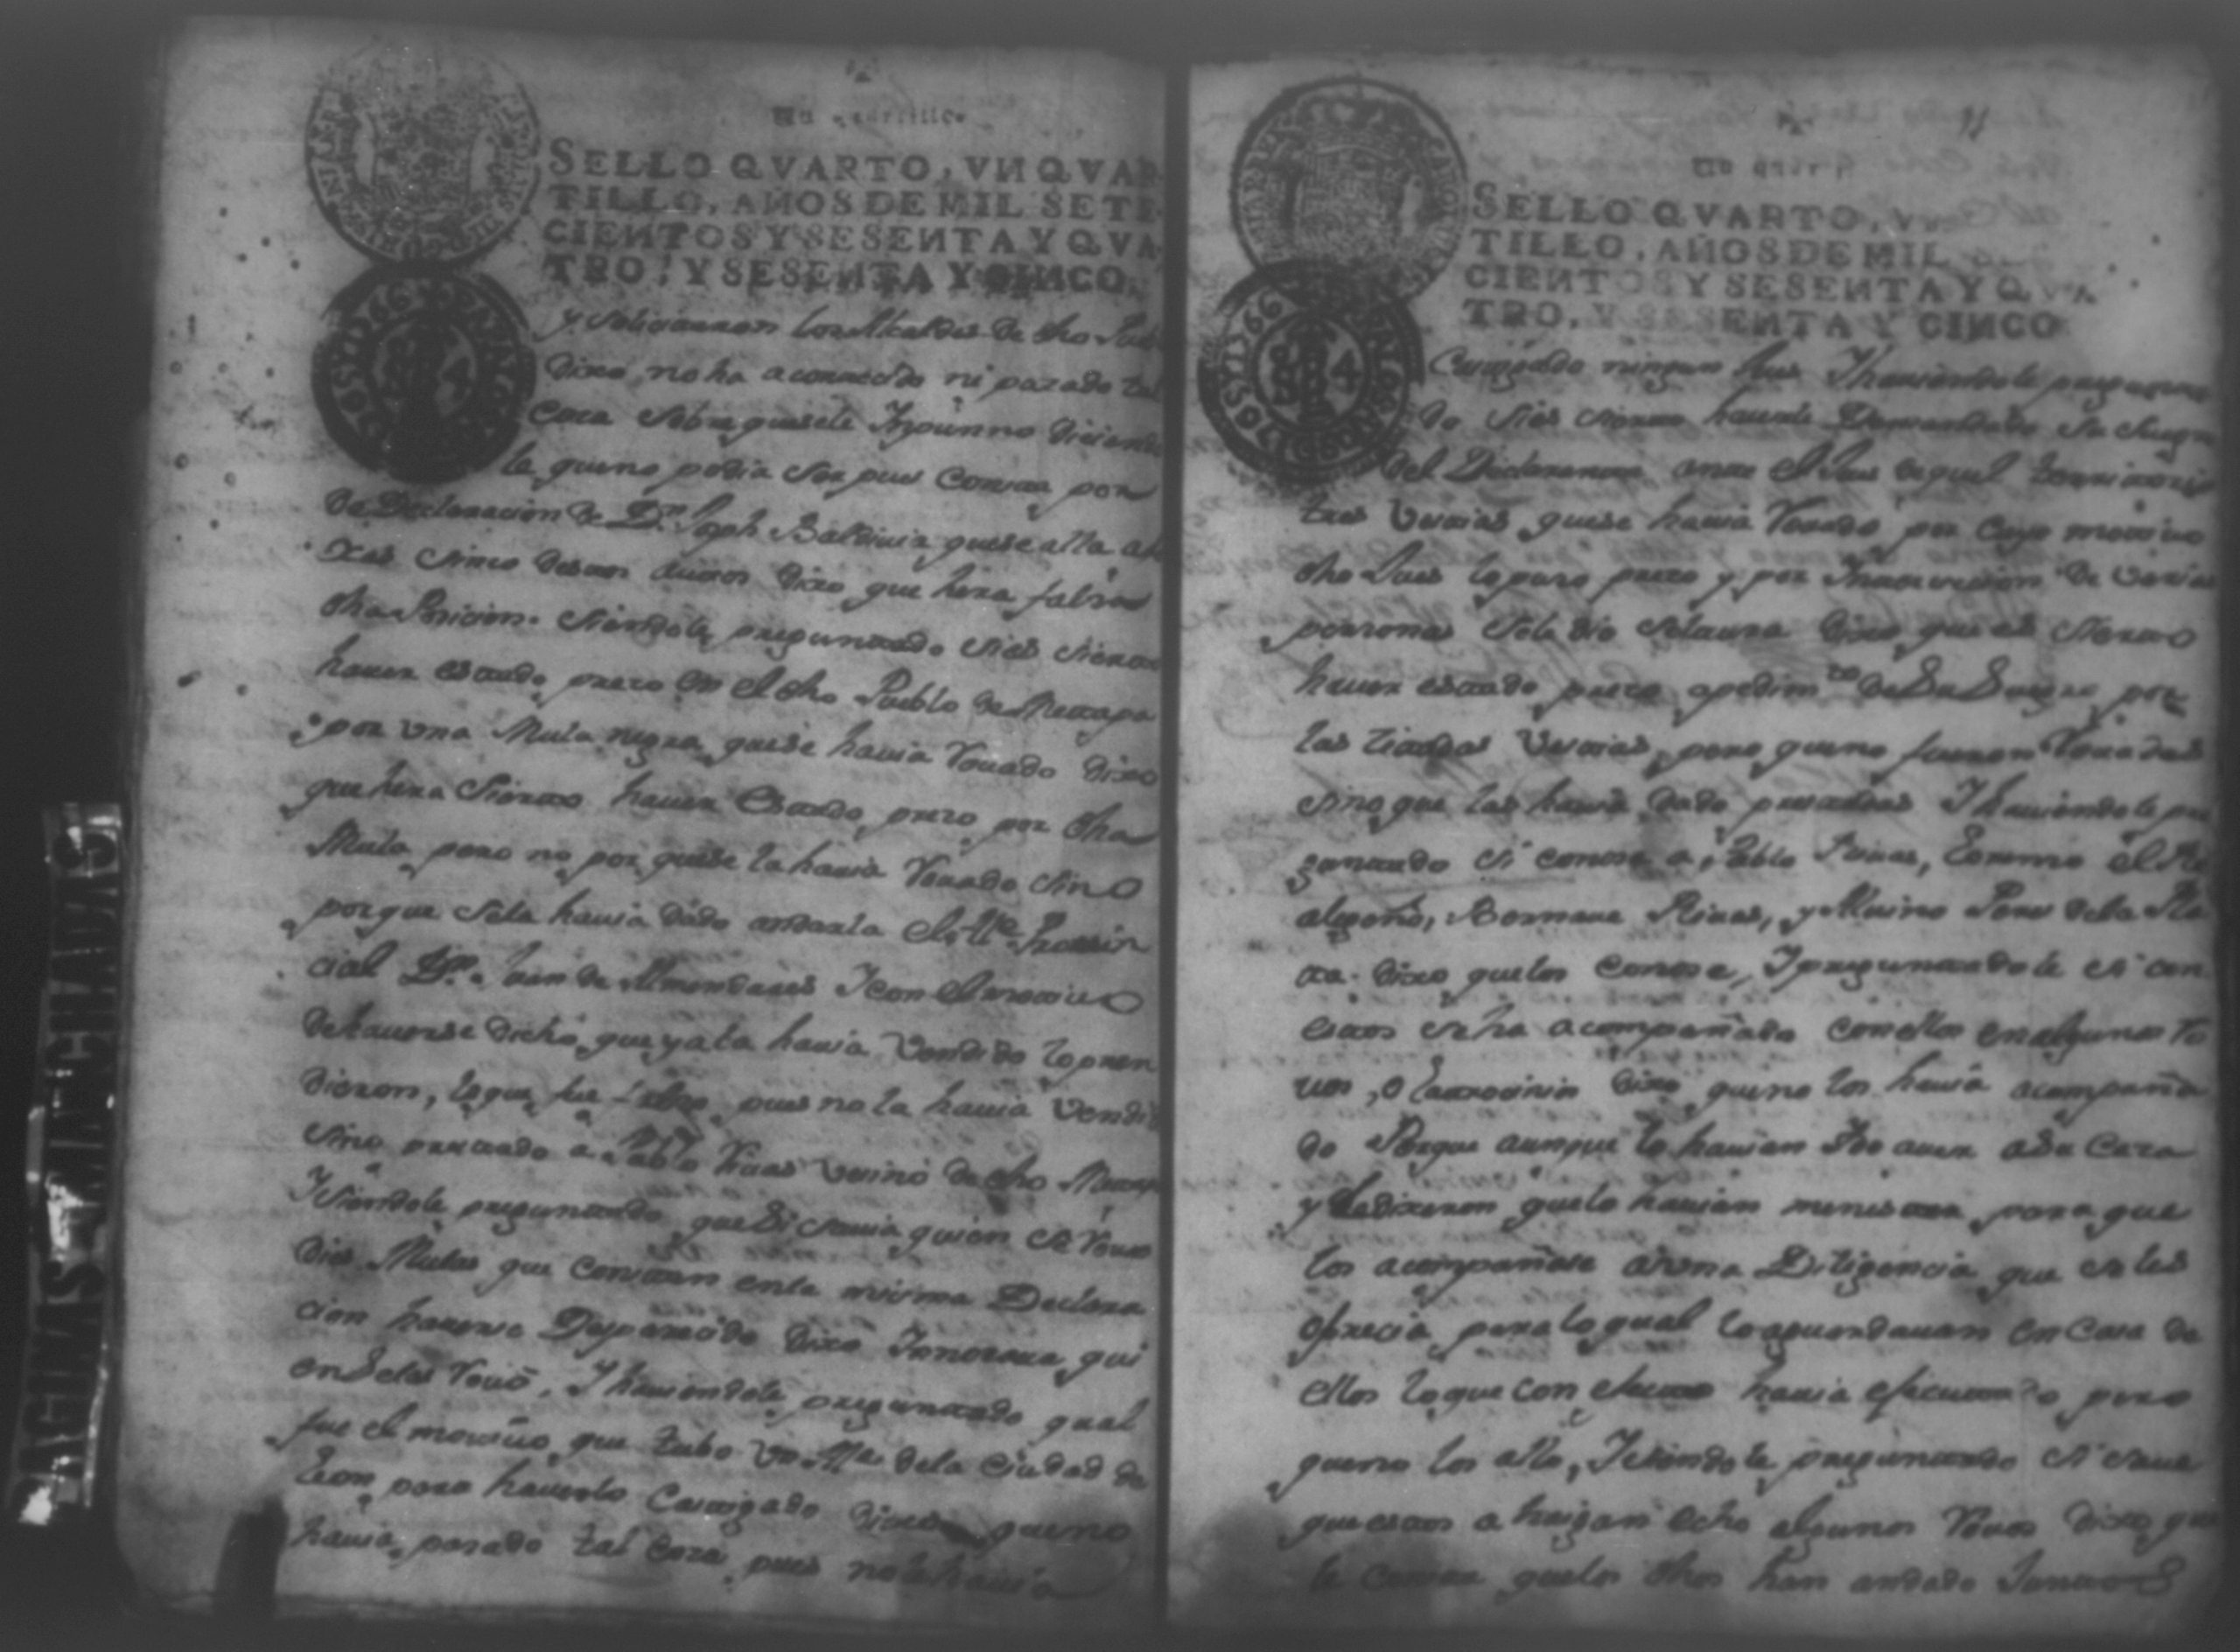 Un quartillo
SELLO QVARTO, VN QVAR
TILLO, AÑOS DE MIL SETE
CIENTOS Y SESENTA Y QVA
TRO, Y SESENTA Y CINCO.
y los Alcaldes de dho
dixo no ha acontecido ni pazado tal
Coza sobre que sele diciendo
le que no podia ser pues Consta por
la Declaracion de Dn Joph Baldivia que se alla
xas sinco destos autos dixo que hera falsa
dha Pricion. Siendole preguntado si es sierto
haver estado prezo en el dho Pueblo de Metapa
por una Mula negra que se havia Rovado dixo
que hera Sierto haver Estado prezo por dha
Mula pero no por que se la havia Rovado sino
porque sela havia dado el Alle Provin
cial Dn. Juan de Almendares I con el motivo
de haverse dicho que ya la havia Vendido lo pren
dieron, lo que fue falso pues no la havia Vendi
sino prestado a Pablo Rivas vecino de dho Metapa
I siendole preguntado que si savia quien se Rovo
dies Mulas que Constan en la misma Declara
cion haverse Desparecido dixo Innorava qui
en selas Rovó, I haviendole preguntado qual
fue el motivo que tubo un Alle de la Ciudad de
Leon para haverlo Castigado dixo que no
havia pasado tal Coza pues no le havia
91
Un quart
SELLO QVARTO, V
TILLO, AÑOS DE MIL
CIENTOS Y SESENTA Y QVA
TRO, Y SESENTA Y CINCO
Castigado ningun Jues I haviendole pregunta
do si es sierto haverle Demandado su Suegro
del Declarante ante el Jues de aquel territorio
tres Vestias que se havia Rovado por cuyo motivo
dho Jues lo puso prezo y por Intercesion de varias
personas sele dio soltura dixo que es sierto
haver estado prezo a pedimto de su Suegro por
las sitadas Vestias, pero que no fueron Rovadas
sino que las havia dado prestadas I haviendole pre
guntado si conose a Pablo Rivas,
Rivas, y Pers de la
ta. dixo que los Conose, I preguntadole si con
estos se ha acompañado con ellos en algunos Ro
vos, o latrosinio dixo que no los havia acompaña
do Porque aunque lo havian Ido aver a su Caza
y le dixeron que lo havian menester para que
los acompañase a una Diligencia que se les
ofrecia para lo qual lo aguardavan en Casa de
ellos lo que con efecto havia efecutado pero
que no los allo, I siendole preguntado si save
que estos a haigan echo algunos Rovos dixo que
le Consta que los dhos han andado